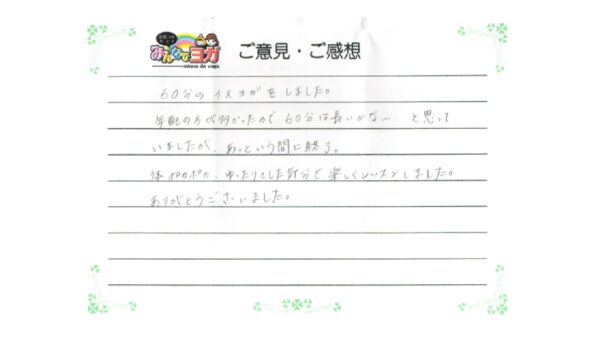 みんなでヨガ
minna de yoga
ご意見・ご感想
60分のイスヨガをしました。
年配の方が多かったので60分は長いかな… と思って
いましたが、あっという間に終了。
体ポカポカ、ゆったりとした気分で楽しくレッスンしました。
ありがとうございました。